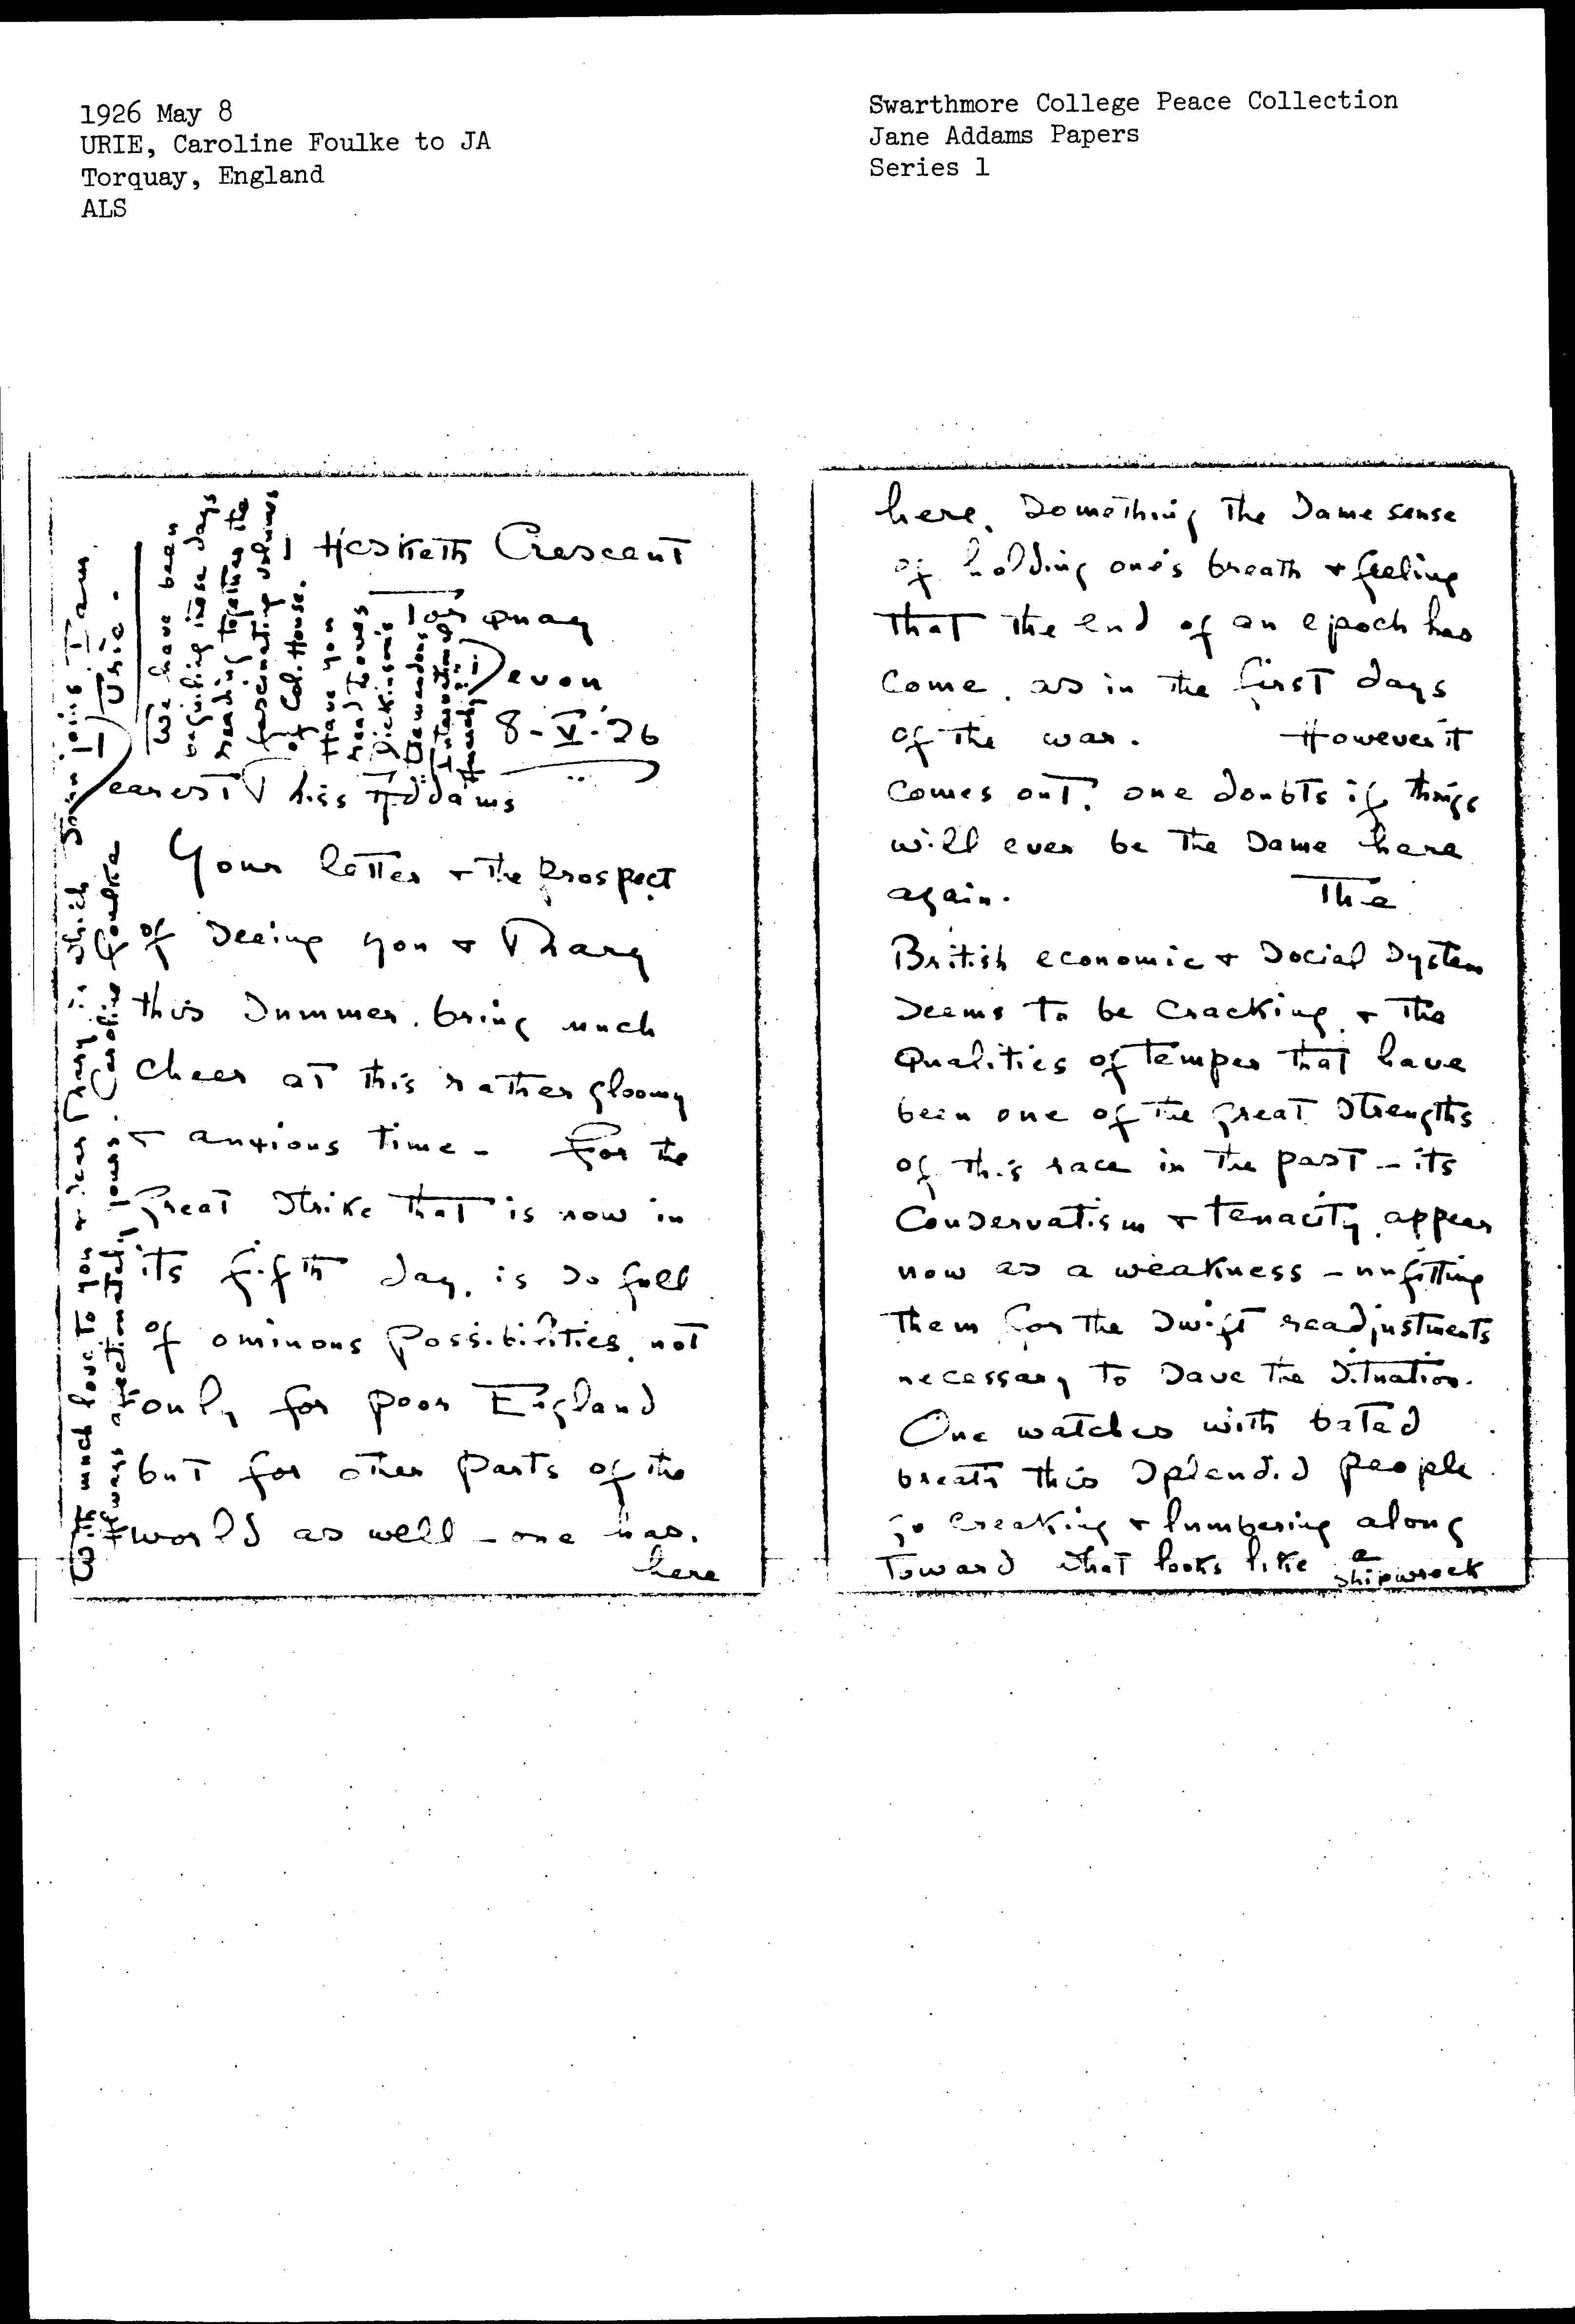 1926 May 8
URIE, Caroline Foulke to JA
Torquay, England
ALS
Swarthmore College Peace Collection
Jane Addams Papers
Series 1
1 Hesketh Crescent
Torquay
Devon
8-V-26
Dearest Miss Addams
Your letter & the prospect
of seeing you & Mary
this summer, bring much
cheer at this rather gloomy
& anxious time - For the
great strike that is now in
its fifth day, is so full
of ominous possibilities, not
only for poor England
but for other parts of the
world as well - one has,
here
With much love to you & dear Mary in which John joins I am
always affectionately yours. Caroline Foulke Urie.
We have been
beguiling these days
reading together the
fascinating volumes
of Col. House.
Have you
read Lowes
Dickinson's
tremendous
"International
Anarchy"?
here, something the same sense
of holding one's breath & feeling
that the end of an epoch has
come, as in the first days
of the war. However it
comes out, one doubts if things
will ever be the same here
again. The
British economic & social system
seems to be cracking, & the
qualities of temper that have
been one of the great strengths
of this race in the past - its
conservatism & tenacity, appear
now as a weakness - unfitting
them for the swift readjustments
necessary to save the situation.
One watches with bated
breath this splendid people
go creaking & lumbering along
toward what looks like a
shipwreck